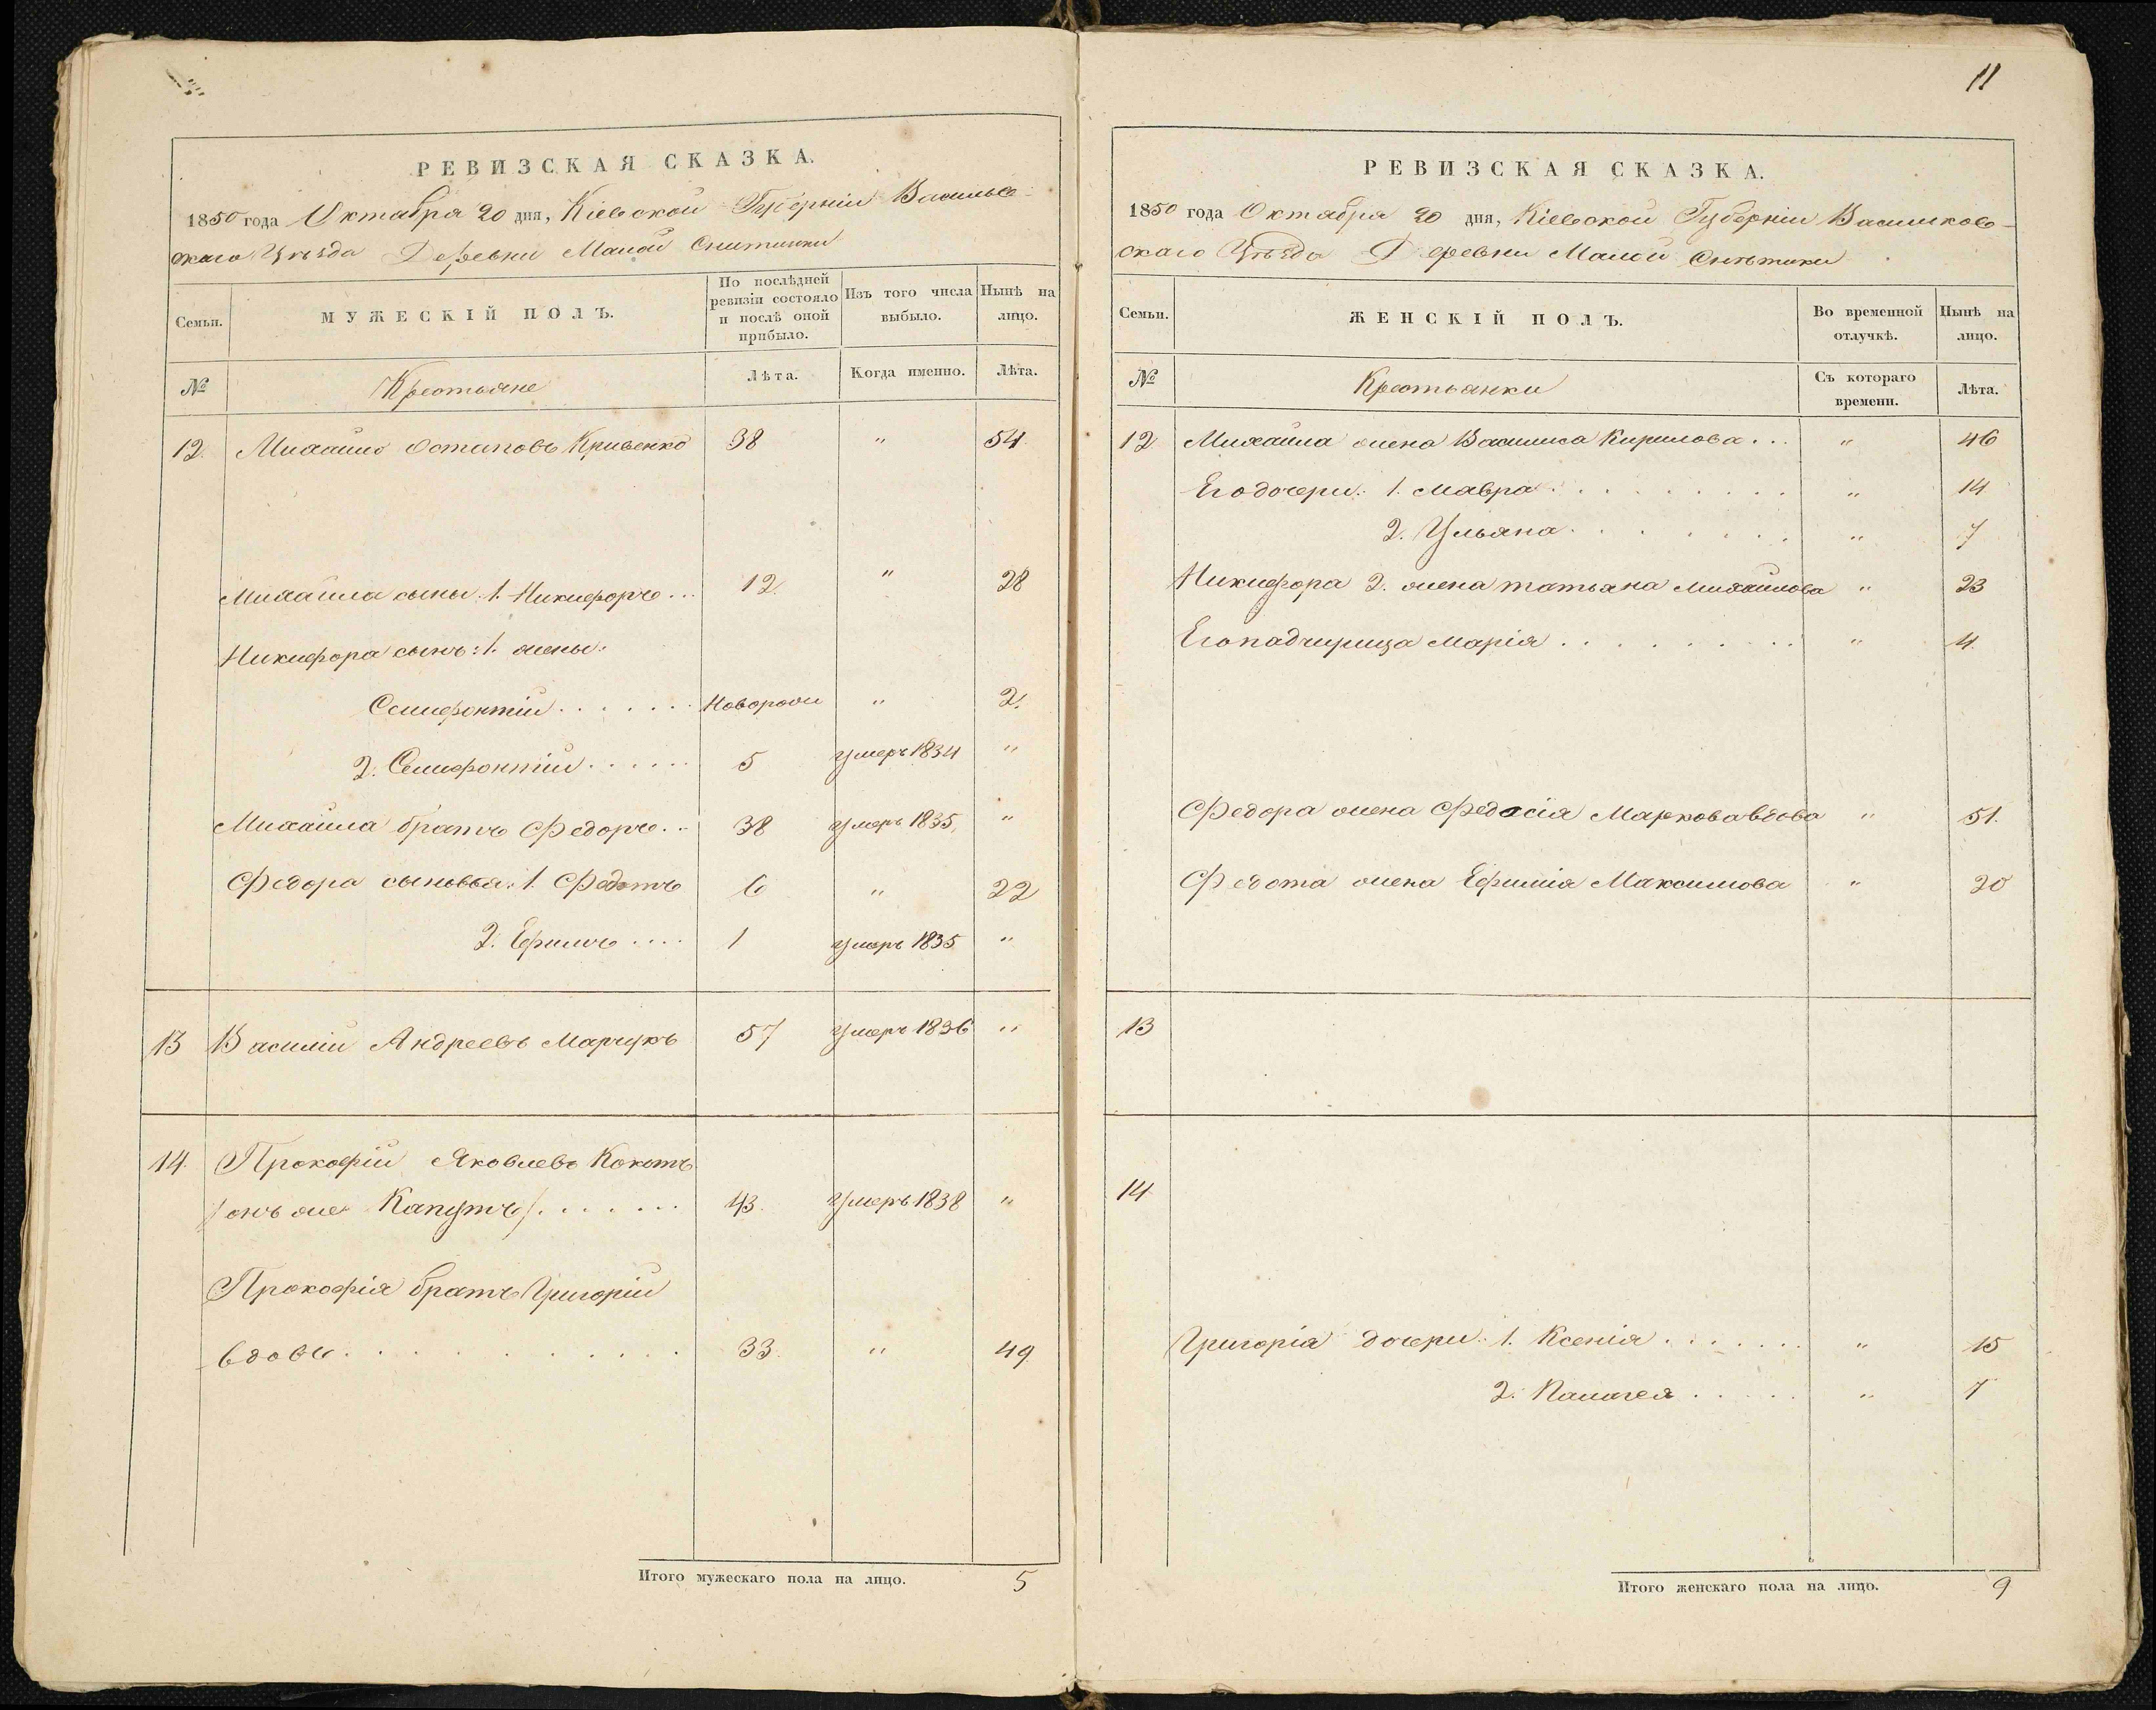 РЕВИЗСКАЯ СКАЗКА.
1850 года Октября 20 дня, Кіевской Губерніи Васильков-
скаго Уѣзда Деревни Малой Снитинки
Семьи.
МУЖЕСКІЙ ПОЛЪ.
По послѣдней ревизіи состояло и послѣ оной прибыло.
Изъ того числа выбыло.
Нынѣ на лицо.
№ Крестьяне Лѣта. Когда именно. Лѣта.
12. Михайло Остаповъ Кривенко 38 " 54.
Михайла сыны: 1. Никифоръ... 12. " 28
Никифора сынъ: 1. жены:
Семифонтій....... Новорож " 2.
2. Семифонтій...... 5 умеръ 1834 "
Михайла братъ Федоръ... 38 умеръ 1835, "
Федора сыновья: 1. Федотъ 6 " 22
2. Ефимъ.... 1 умеръ 1835 "
13 Василій Андреевъ Марчукъ 57 умеръ 1836 "
14. Прокофій Яковлевъ Кокотъ
/онъ же Капутъ/....... 43. умеръ 1838 "
Прокофія братъ Григорій
вдовъ............ 33. " 49.
Итого мужескаго пола на лицо. 5
11
РЕВИЗСКАЯ СКАЗКА.
1850 года Октября 20 дня, Кіевской Губерніи Васильков-
скаго Уѣзда Деревни Малой Снѣтинки
Семьи.
ЖЕНСКІЙ ПОЛЪ.
Во временной отлучкѣ.
Нынѣ на лицо.
№ Крестьянки Съ котораго времени. Лѣта.
12 Михайла жена Василиса Кирилова... " 46
Его дочери: 1. Мавра......... " 14
2. Ульяна........ " 7
Никифора 2. жена татьяна Михайлова " 23
Его падчирица Марія......... " 4.
Федора жена Федосія Маркова вдова " 51.
Федота жена Ефимія Максимова " 20
13
14
Григорія дочери: 1. Ксенія...... " 15
2. Палагея..... " 7
Итого женскаго пола на лицо. 9